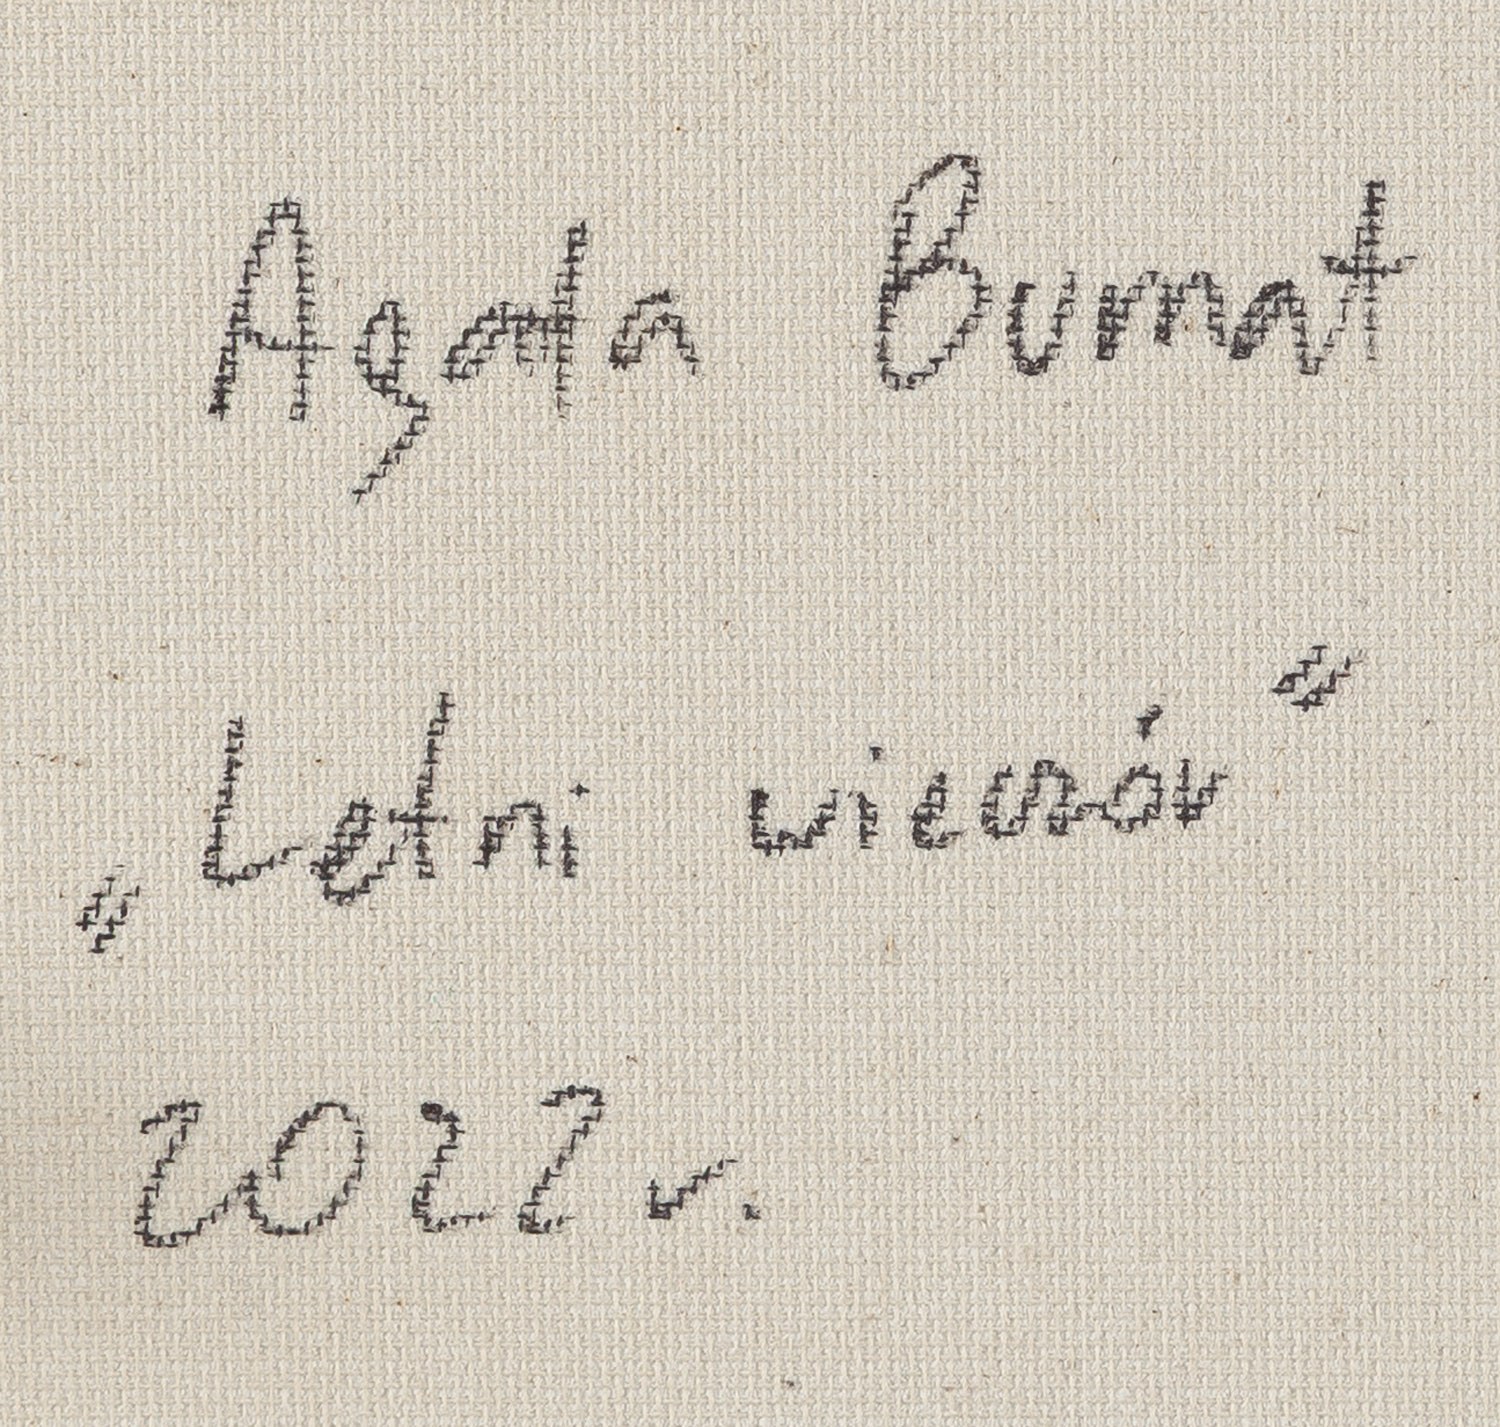 Agata Burnat
"Letni wieczór"
2022 r.